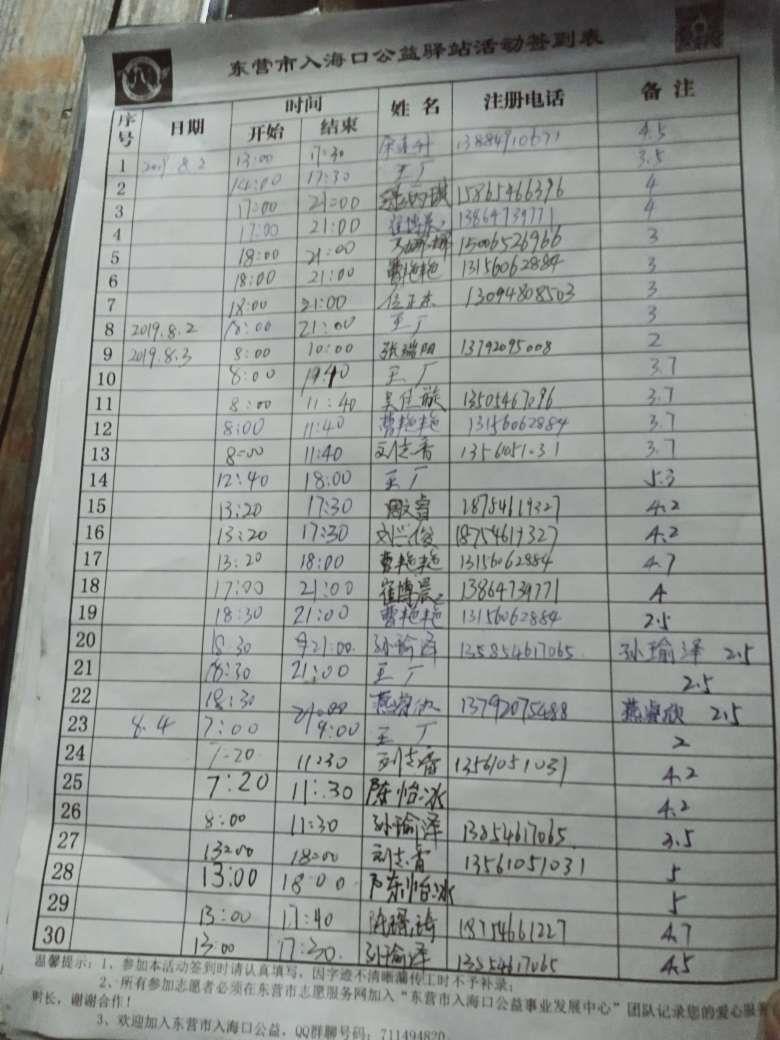 东营市入海口公益驿站活动签到表
序号 日期 时间 开始 结束 姓名 注册电话 备注
1 2019.8.2 13:00 17:30 13884910671 4.5
2 14:00 17:30 王广 3.5
3 17:00 21:00 15865466396 4
4 17:00 21:00 崔博晨 13864739771 4
5 18:00 21:00 15006526966 3
6 18:00 21:00 曹艳艳 13156062884 3
7 18:00 21:00 13094808503 3
8 2019.8.2 18:00 21:00 王广 3
9 2019.8.3 8:00 10:00 张瑞阳 13792095008 2
10 8:00 王广 3.7
11 8:00 11:40 13505467096 3.7
12 8:00 11:40 曹艳艳 13156062884 3.7
13 8:00 11:40 刘志香 3.7
14 12:40 18:00 王广 5.3
15 13:20 17:30 18754619327 4.2
16 13:20 17:30 刘兴俊 18754619327 4.2
17 13:20 18:00 曹艳艳 13156062884 4.7
18 17:00 21:00 崔博晨 13864739771 4
19 18:30 21:00 曹艳艳 13156062884 2.5
20 18:30 21:00 孙瑜泽 135854617065 孙瑜泽 2.5
21 18:30 21:00 王广 2.5
22 18:30 21:00 燕睿欣 13792075488 燕睿欣 2.5
23 8.4 7:00 9:00 王广 2
24 7:20 11:30 刘志香 13561051031 4.2
25 7:20 11:30 陈怡冰 4.2
26 8:00 11:30 孙瑜泽 13854617065 3.5
27 13:00 18:00 刘志香 13561051031 5
28 13:00 18:00 陈怡冰 5
29 13:00 17:40 18754661227 4.7
30 13:00 17:30 孙瑜泽 13854617065 4.5
温馨提示：1、参加本活动签到时请认真填写，因字迹不清晰漏传工时不予补录；
2、所有参加志愿者必须在东营市志愿服务网加入“东营市入海口公益事业发展中心”团队记录您的爱心服务
时长，谢谢合作！
3、欢迎加入东营市入海口公益，QQ群聊号码：711494820